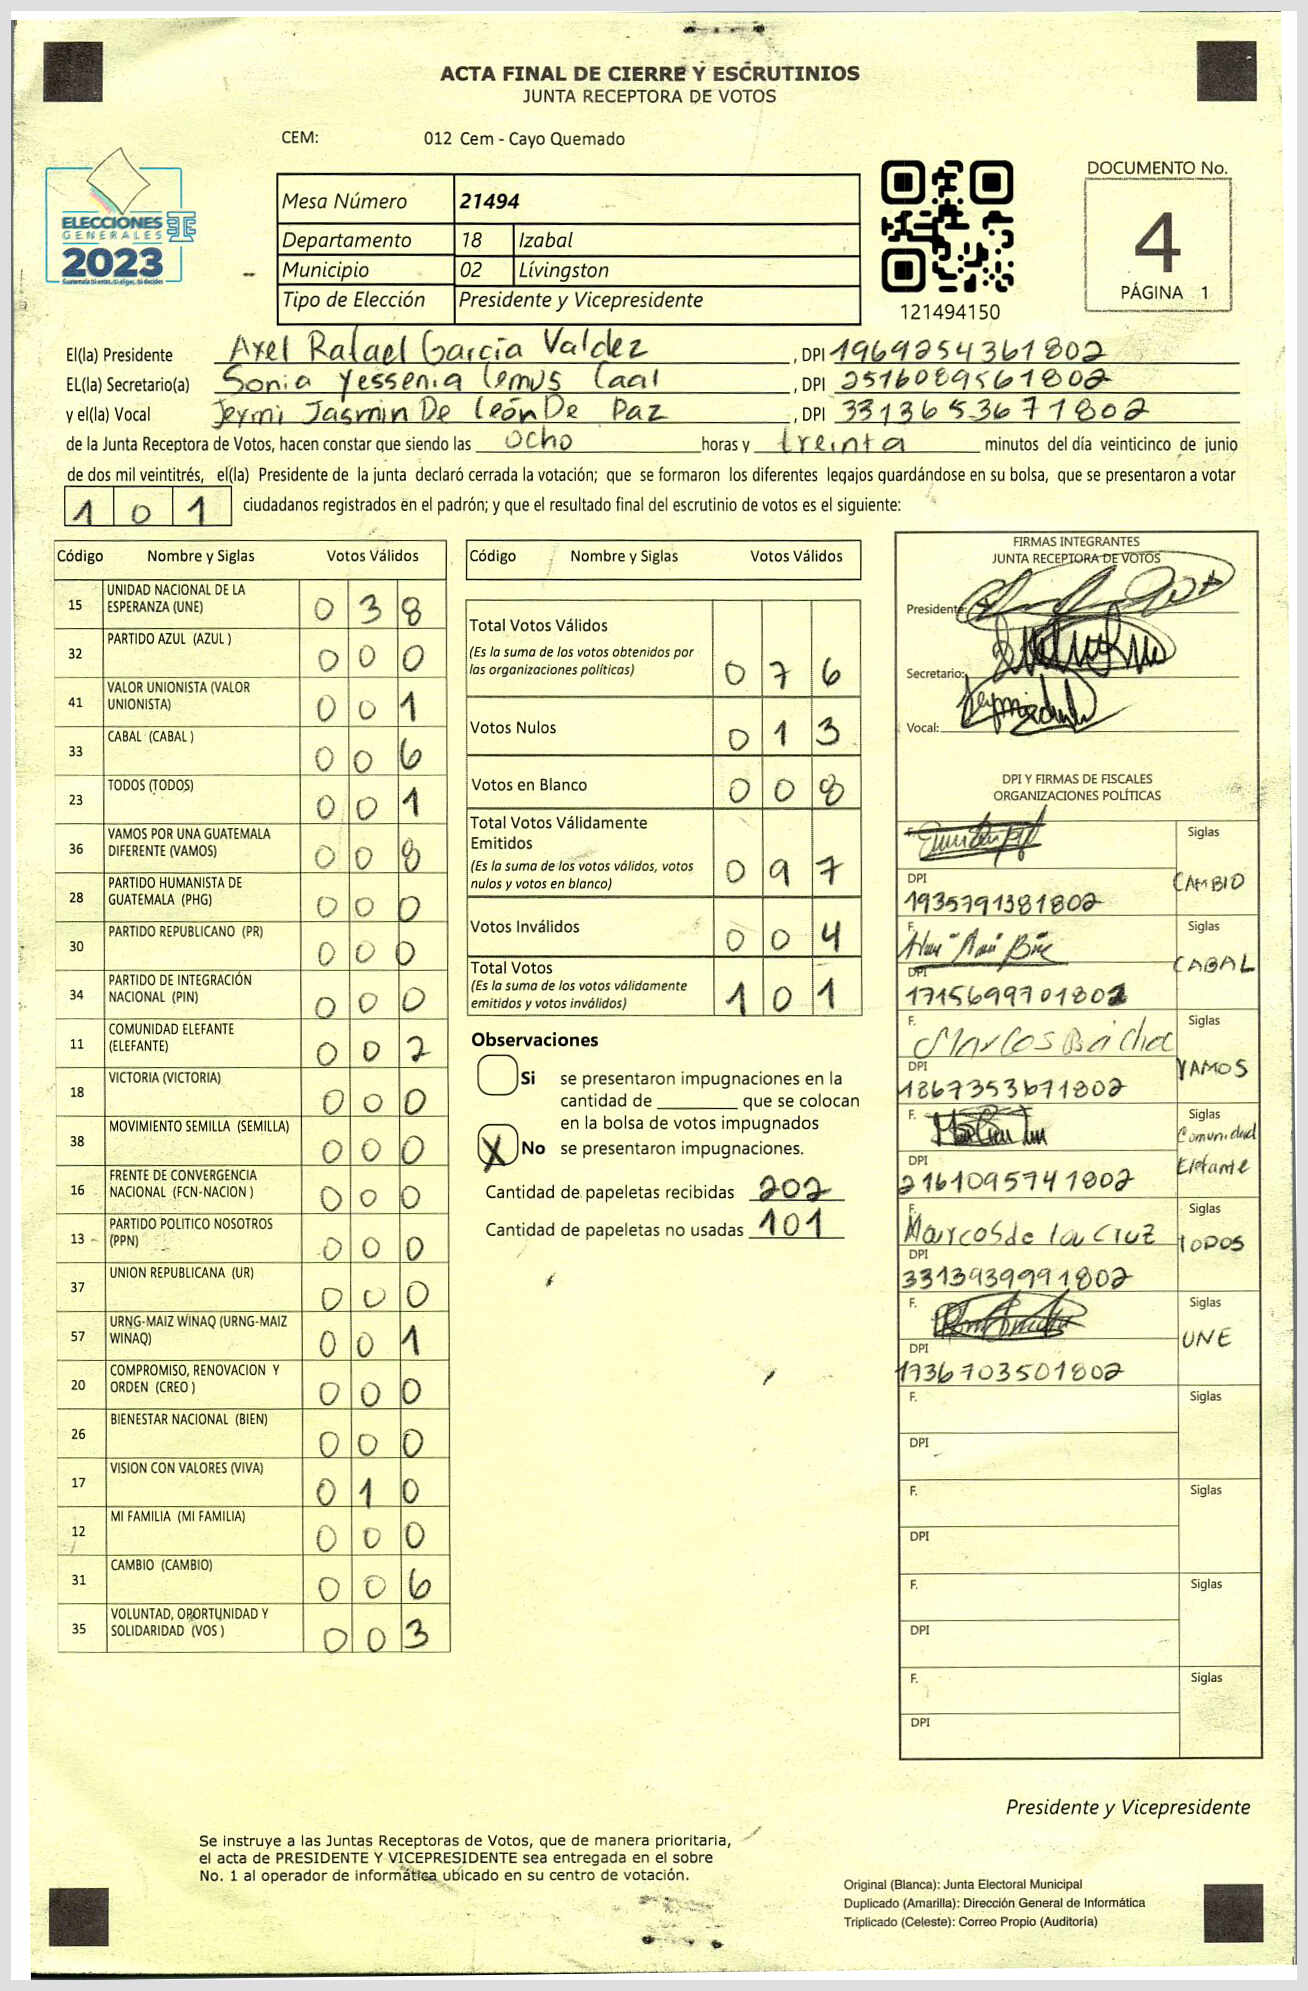 ACTA FINAL DE CIERRE Y ESCRUTINIOS
JUNTA RECEPTORA DE VOTOS
CEM: 012 Cem - Cayo Quemado
ELECCIONES
GENERALES
2023
Mesa Número 21494
Departamento 18 Izabal
Municipio 02 Lívingston
Tipo de Elección Presidente y Vicepresidente
121494150
DOCUMENTO No.
4
PÁGINA 1
El(la) Presidente Axel Rafael García Valdez , DPI 1969254361802
EL(la) Secretario(a) Sonia Yessenia Lemus Caal , DPI 2516089561802
y el(la) Vocal Jeymi Jasmin De León De Paz , DPI 3313653671802
de la Junta Receptora de Votos, hacen constar que siendo las ocho horas y treinta minutos del día veinticinco de junio
de dos mil veintitrés, el(la) Presidente de la junta declaró cerrada la votación; que se formaron los diferentes legajos guardándose en su bolsa, que se presentaron a votar
101 ciudadanos registrados en el padrón; y que el resultado final del escrutinio de votos es el siguiente:
Código Nombre y Siglas Votos Válidos
15 UNIDAD NACIONAL DE LA ESPERANZA (UNE) 0 3 8
32 PARTIDO AZUL (AZUL ) 0 0 0
41 VALOR UNIONISTA (VALOR UNIONISTA) 0 0 1
33 CABAL (CABAL ) 0 0 6
23 TODOS (TODOS) 0 0 1
36 VAMOS POR UNA GUATEMALA DIFERENTE (VAMOS) 0 0 8
28 PARTIDO HUMANISTA DE GUATEMALA (PHG) 0 0 0
30 PARTIDO REPUBLICANO (PR) 0 0 0
34 PARTIDO DE INTEGRACIÓN NACIONAL (PIN) 0 0 0
11 COMUNIDAD ELEFANTE (ELEFANTE) 0 0 2
18 VICTORIA (VICTORIA) 0 0 0
38 MOVIMIENTO SEMILLA (SEMILLA) 0 0 0
16 FRENTE DE CONVERGENCIA NACIONAL (FCN-NACION ) 0 0 0
13 PARTIDO POLITICO NOSOTROS (PPN) 0 0 0
37 UNION REPUBLICANA (UR) 0 0 0
57 URNG-MAIZ WINAQ (URNG-MAIZ WINAQ) 0 0 1
20 COMPROMISO, RENOVACION Y ORDEN (CREO ) 0 0 0
26 BIENESTAR NACIONAL (BIEN) 0 0 0
17 VISION CON VALORES (VIVA) 0 1 0
12 MI FAMILIA (MI FAMILIA) 0 0 0
31 CAMBIO (CAMBIO) 0 0 6
35 VOLUNTAD, OPORTUNIDAD Y SOLIDARIDAD (VOS ) 0 0 3
Código Nombre y Siglas Votos Válidos
Total Votos Válidos
(Es la suma de los votos obtenidos por
las organizaciones políticas) 0 7 6
Votos Nulos 0 1 3
Votos en Blanco 0 0 8
Total Votos Válidamente
Emitidos
(Es la suma de los votos válidos, votos
nulos y votos en blanco) 0 9 7
Votos Inválidos 0 0 4
Total Votos
(Es la suma de los votos válidamente
emitidos y votos inválidos) 1 0 1
Observaciones
Si se presentaron impugnaciones en la
cantidad de ________ que se colocan
en la bolsa de votos impugnados
X No se presentaron impugnaciones.
Cantidad de papeletas recibidas 202
Cantidad de papeletas no usadas 101
FIRMAS INTEGRANTES
JUNTA RECEPTORA DE VOTOS
Presidente:
Secretario:
Vocal:
DPI Y FIRMAS DE FISCALES
ORGANIZACIONES POLÍTICAS
F. Siglas
DPI CAMBIO
1935791381802
F. Siglas
DPI CABAL
1715699701802
F. Marcos Siglas
DPI VAMOS
1867353671802
F. Siglas
Comunidad
DPI Elefante
2161095741802
F. Marcos de la Cruz Siglas
DPI TODOS
3313939991802
F. Siglas
DPI UNE
1736703501802
F. Siglas
DPI
F. Siglas
DPI
F. Siglas
DPI
F. Siglas
DPI
Presidente y Vicepresidente
Se instruye a las Juntas Receptoras de Votos, que de manera prioritaria,
el acta de PRESIDENTE Y VICEPRESIDENTE sea entregada en el sobre
No. 1 al operador de informática ubicado en su centro de votación.
Original (Blanca): Junta Electoral Municipal
Duplicado (Amarilla): Dirección General de Informática
Triplicado (Celeste): Correo Propio (Auditoría)